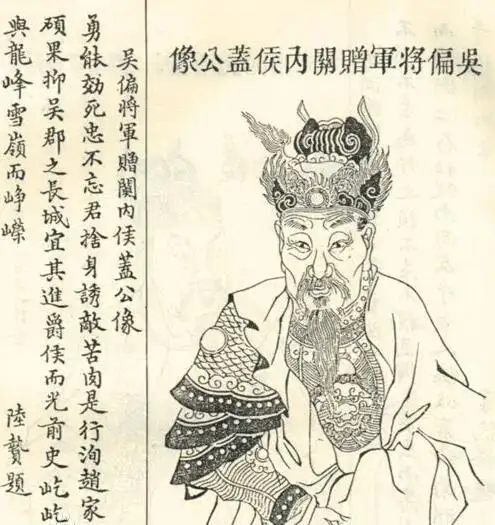 吳偏将軍贈關內侯蓋公像
吳偏將軍贈關内侯蓋公像
勇能効死忠不忘君捨身誘敵苦肉是行洵趙家
碩果抑吳郡之長城宜其進爵侯而光前史屹屹
與龍峰雪嶺而崢嶸
陸贄題